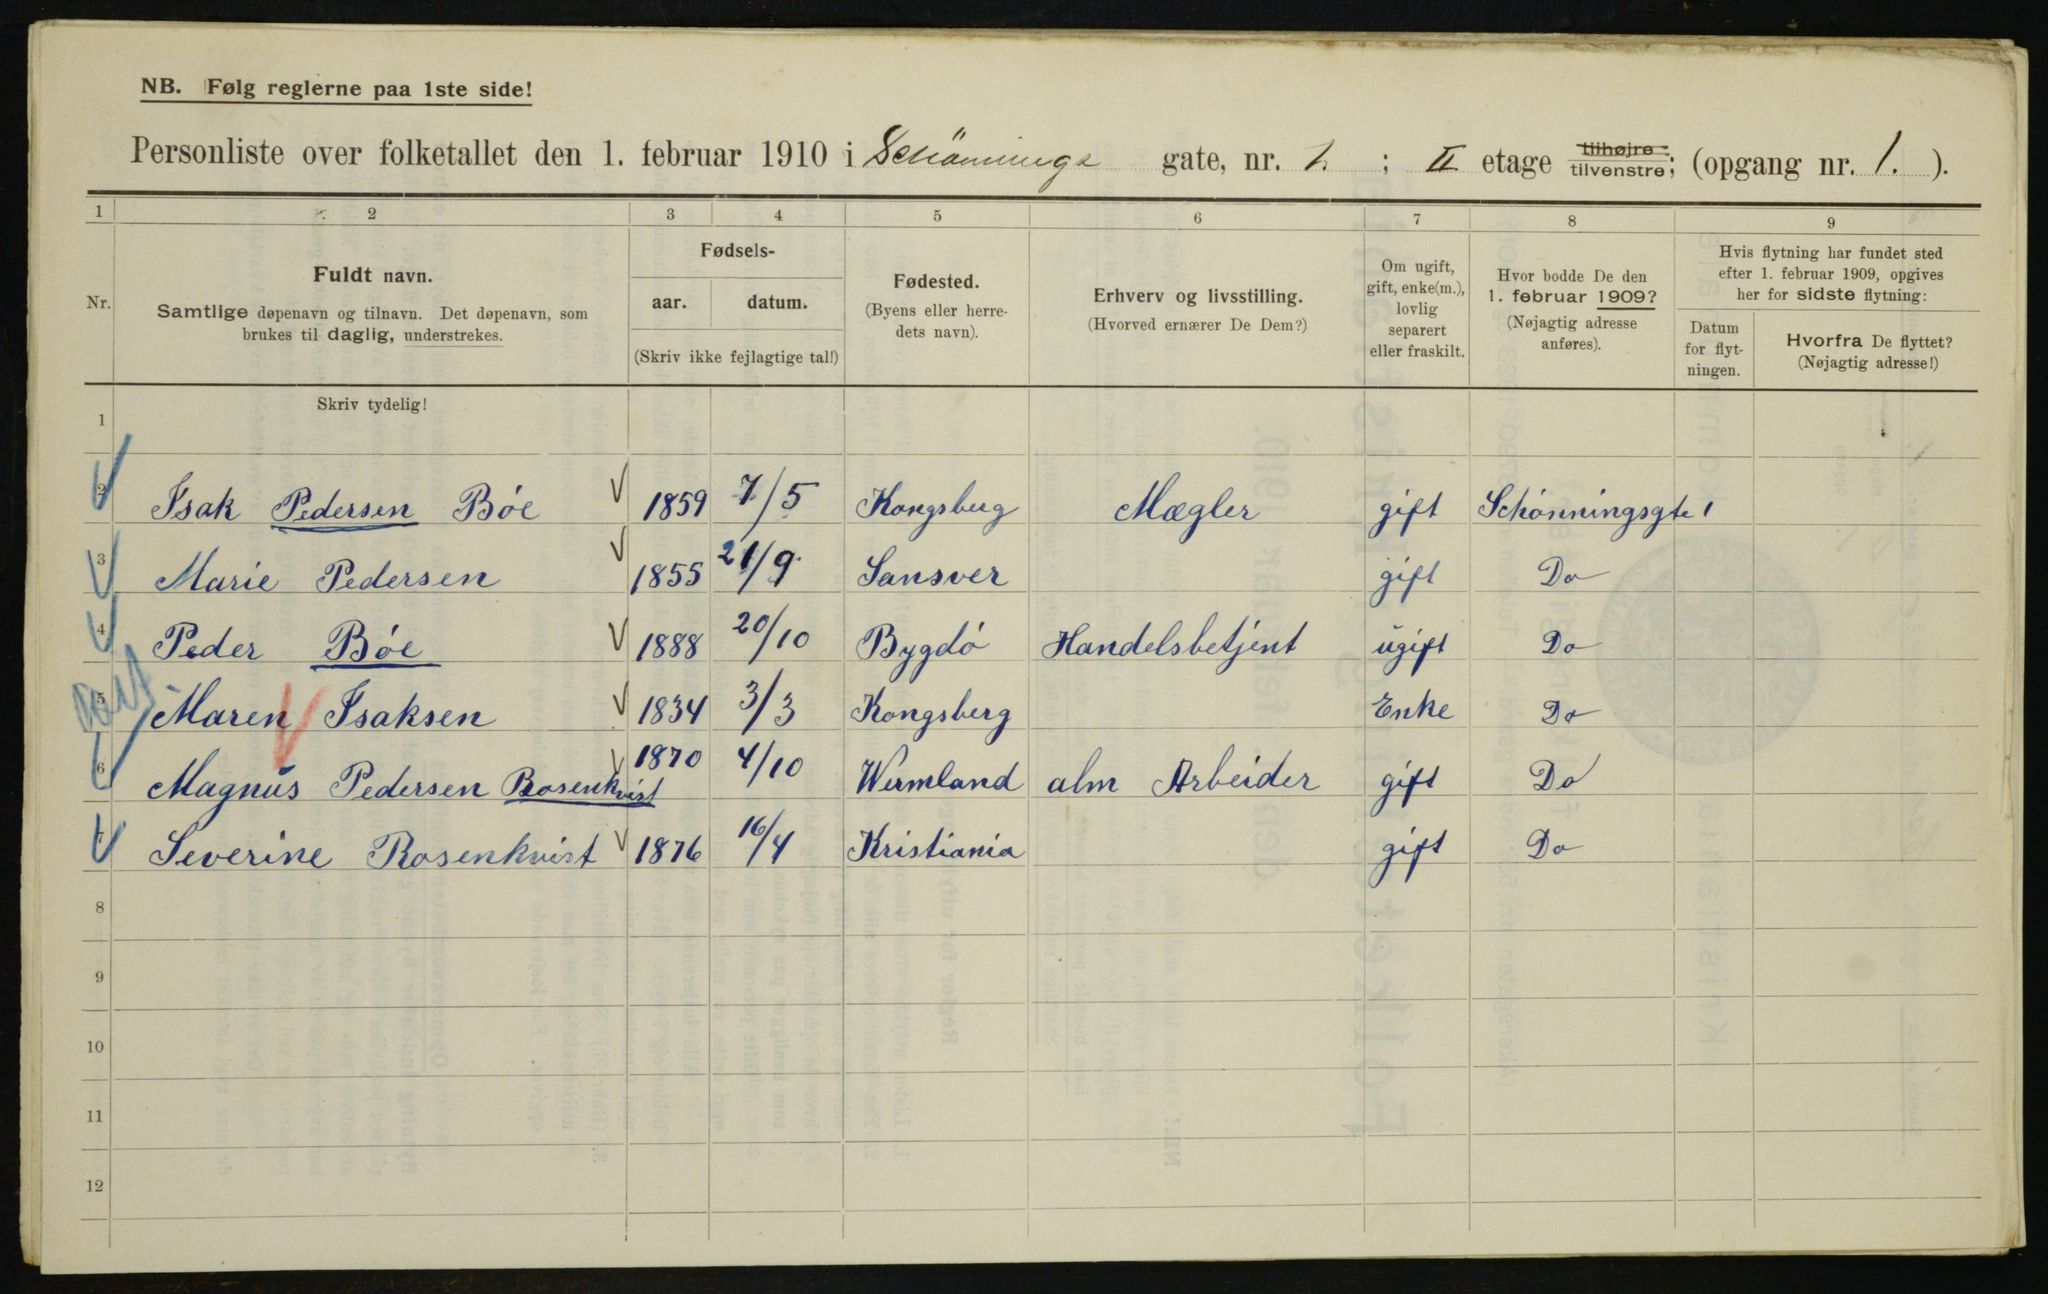 NB. Følg reglerne paa 1ste side!
Personliste over folketallet den 1. februar 1910 i Schönnings gate, nr. 1. ; II etage tilhøjre tilvenstre; (opgang nr. 1. ).
1 2 3 4 5 6 7 8 9
Nr.
Fuldt navn.
Samtlige døpenavn og tilnavn. Det døpenavn, som
brukes til daglig, understrekes.
Fødsels-
aar. datum.
(Skriv ikke fejlagtige tal!)
Fødested.
(Byens eller herre-
dets navn).
Erhverv og livsstilling.
(Hvorved ernærer De Dem?)
Om ugift,
gift, enke(m.),
lovlig
separert
eller fraskilt.
Hvor bodde De den
1. februar 1909?
(Nøjagtig adresse
anføres).
Hvis flytning har fundet sted
efter 1. februar 1909, opgives
her for sidste flytning:
Datum
for flyt-
ningen.
Hvorfra De flyttet?
(Nøjagtig adresse!)
Skriv tydelig!
1
2 Isak Pedersen Böe 1859 7/5 Kongsberg Mægler gift Schönningsgte 1
3 Marie Pedersen 1855 21/9 Sansver gift Do
4 Peder Böe 1888 20/10 Bygdö Handelsbetjent ugift Do
5 Maren Isaksen 1834 3/3 Kongsberg Enke Do
6 Magnus Pedersen Rosenkvist 1870 4/10 Wermland alm Arbeider gift Do
7 Severine Rosenkvist 1876 16/4 Kristiania gift Do
8
9
10
11
12